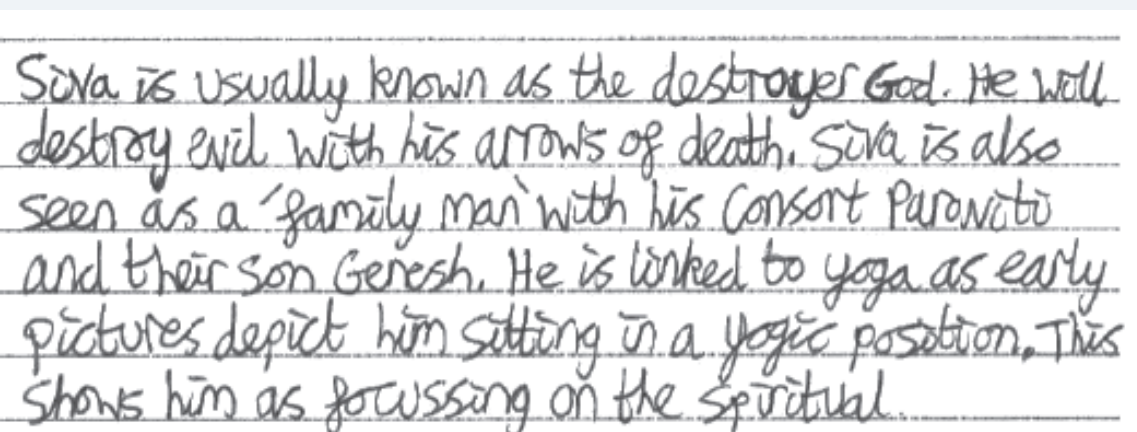 Siva is usually known as the destroyer God. He will
destroy evil with his arrows of death. Siva is also
seen as a 'family man' with his consort Paraviti
and their son Genesh. He is linked to yoga as early
pictures depict him sitting in a yogic position. This
shows him as focussing on the spiritual.